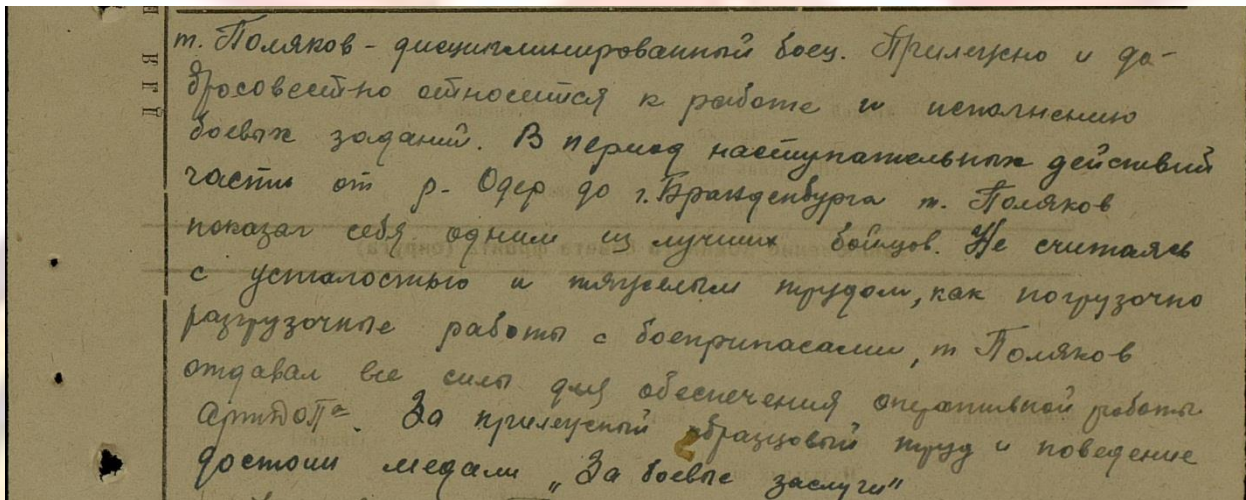 т. Поляков - дисциплинированный боец. Прилежно и до-
бросовестно относится к работе и исполнению
боевых заданий. В период наступательных действий
части от р. Одер до г. Бранденбурга т. Поляков
показал себя одним из лучших бойцов. Не считаясь
с усталостью и тяжелым трудом, как погрузочно
разгрузочные работы с боеприпасами, т Поляков
отдавал все силы для обеспечения оперативной работы
За прилежный образцовый труд и поведение
достоин медали "За боевые заслуги"